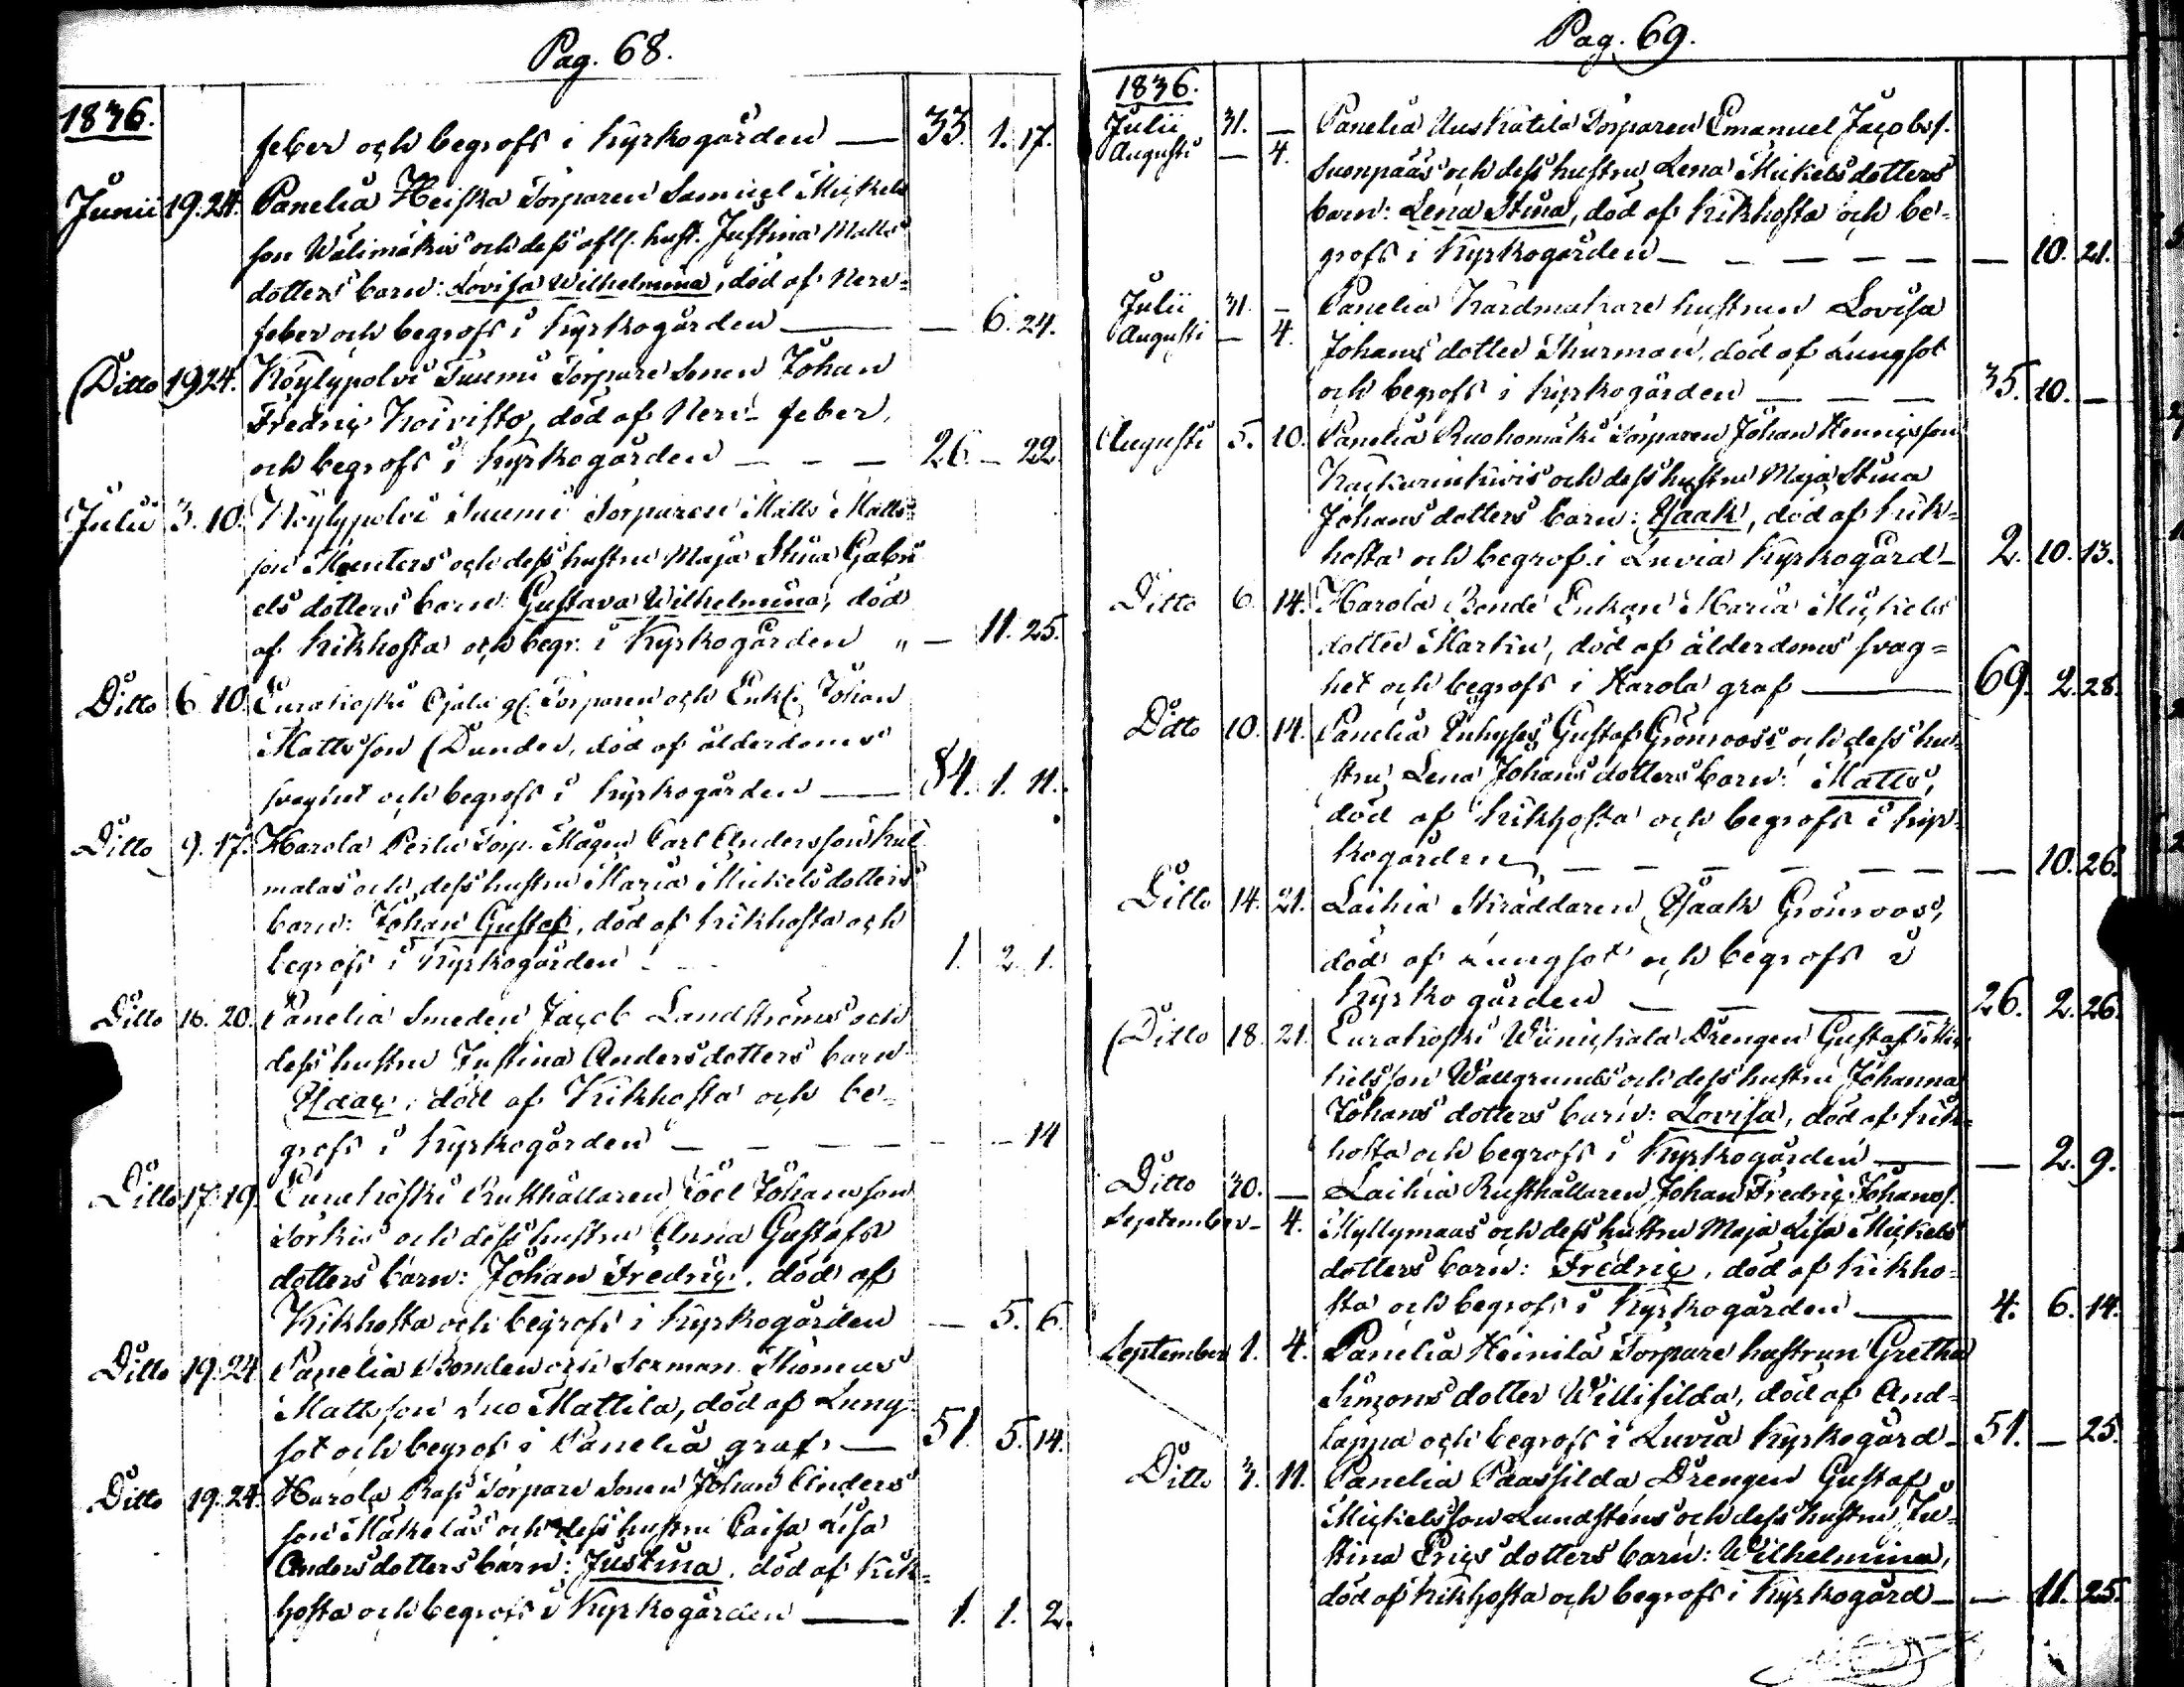 Pag. 68.
1836.
feber och begrofs i kyrkogården — 33. 1. 17.
Junii 19. 24. Panelia Heiska Torparen Samuel Mickels
son Wälimäkis och dess afl. hust. Justina Matts
dotters barn: Lovisa Wilhelmina, död af Nerv=
feber och begrofs i kyrkogården — — 6. 24.
Ditto 19 24. Köylypolvi Tuomi Torpare Sonen Johan
Fredric Koivisto, död af Nerv- feber,
och begrofs i kyrkogården — — — 26 — 22.
Julii 3. 10. Köylypolvi Tuomi Torparen Matts Matts
son Menters och dess hustru Maja Stina Gabri
els dotters barn: Gustava Wilhelmina, död
af kikhosta och begr. i kyrkogården " — 11. 25.
Ditto 6 10. Eurakoski Ojala gl. Torparen och Enkl. Johan
Mattsson Dunder, död af ålderdoms
svaghet och begrofs i kyrkogården — 84. 1. 11.
Ditto 9. 17. Harola Torp. Mågen Carl Andersson Kul
malas och dess hustru Maria Mickelsdotters
barn: Johan Gustaf, död af kikhosta och
begrofs i kyrkogården 1. 2. 1.
Ditto 16. 20. Panelia Smeden Jacob Landströms och
dess hustru Justina Andersdotters barn
död af Kikhosta och be=
grofs i kyrkogården — — — — — — 14
Ditto 17. 19. Eurakoski Rusthållaren Joel Johansson
Torkis och dess hustru Anna Gustafs
dotters barn: Johan Fredric, död af
Kikhosta och begrofs i kyrkogården — 5. 6.
Ditto 19. 24 Panelia Bonden och Sexman Thomas
Mattsson Luo Mattila, död af Lung
sot och begrof. i Panelia graf. — 51. 5. 14.
Ditto 19. 24. Harola Torpare Sonen Johan Anders
son Mäkeläs och dess hustru Caisa Lisa
Andersdotters barn: Justina, död af kik=
hosta och begrofs i kyrkogården — 1. 1. 2.
Pag. 69.
1836.
Julii 31. — Panelia Uuskatila Torparen Emanuel Jacobss.
Augusti — 4. Suonpääs och dess hustru Lena Mickelsdotters
barn: Lena Stina, död af kikhosta och be=
grofs i kyrkogården — — — — — — 10. 21.
Julii 31. — Panelia Kardmakare hustrun Lovisa
Augusti — 4. Johans dotter Thurman, död af Lungsot
och begrofs i kyrkogården — — — 35. 10. —
Augusti 5. 10. Panelia Ruohomäki Torparen Johan Henricsson
och dess hustru Maja Stina
Johans dotters barn: Isaak, död af kik=
hosta och begrof. i Luvia kyrkogård — 2. 10. 13.
Ditto 6. 14. Harola Bonde Enkan Maria Mickels
dotter Markku, död af ålderdoms svag=
het och begrofs i Harola graf — 69. 2. 28.
Ditto 10. 14. Panelia Inhyses Gustaf Grönroos och dess hu=
stru Lena Johans dotters barn: Matts,
död af kikhosta och begrofs i kyr=
kogården — — — — — — — 10. 26.
Ditto 14. 21. Laihia Skräddaren Isaak Grönroos,
död af Lungsot och begrofs i
kyrko gården — — — — 26. 2. 26.
Ditto 18. 21. Eurakoski Drengen Gustaf Mic
kelsson Wallgrunds och dess hustru Johanna
Johans dotters barn: Lovisa, död af kik=
hosta och begrofs i kyrkogården — — 2. 9.
Ditto 30. — Laihia Rusthållaren Johan Fredric Johanss.
September — 4. Myllymaas och dess hustru Maja Lisa Mickels
dotters barn: Fredric, död af kikho=
sta och begrofs i kyrkogården — 4. 6. 14.
September 1. 4. Panelia Heinilä Torpare hustrun Gretha
Simons dotter Willisilda, död af And=
täppa och begrofs i Luvia kyrkogård — 51. — 25.
Ditto 3. 11. Panelia Paassilda Drengen Gustaf
Mickelsson Lundstens och dess hustru Ju=
stina Erics dotters barn: Wilhelmina,
död af kikhosta och begrofs i kyrkogård — — 11. 25.